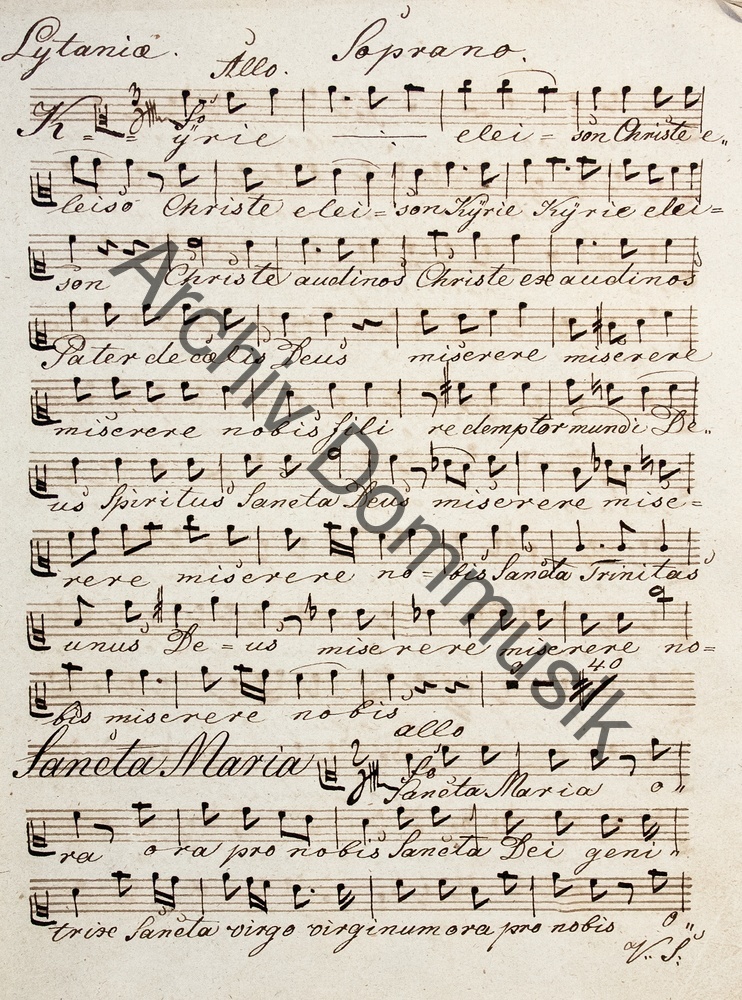 Lytaniæ. Soprano.
Allo.
3 So
Kÿrie elei = son Christe e,,
leiso Christe elei = son Kÿrie Kÿrie elei =
son Christe audinos Christe exaudinos
Pater de cœlis Deus miserere miserere
miserere nobis fili redemptor mundi De,,
us Spiritus Sancta Deus miserere mise =
rere miserere no = bis Sancta Trinitas
unus De = us miserere miserere no =
bis miserere nobis
40
allo
Sancta Maria 2 So
Sancta Maria o,,
ra ora pro nobis Sancta Dei geni,,
trix Sancta virgo virginum ora pro nobis o,,
V: S:
Archiv Dommusik